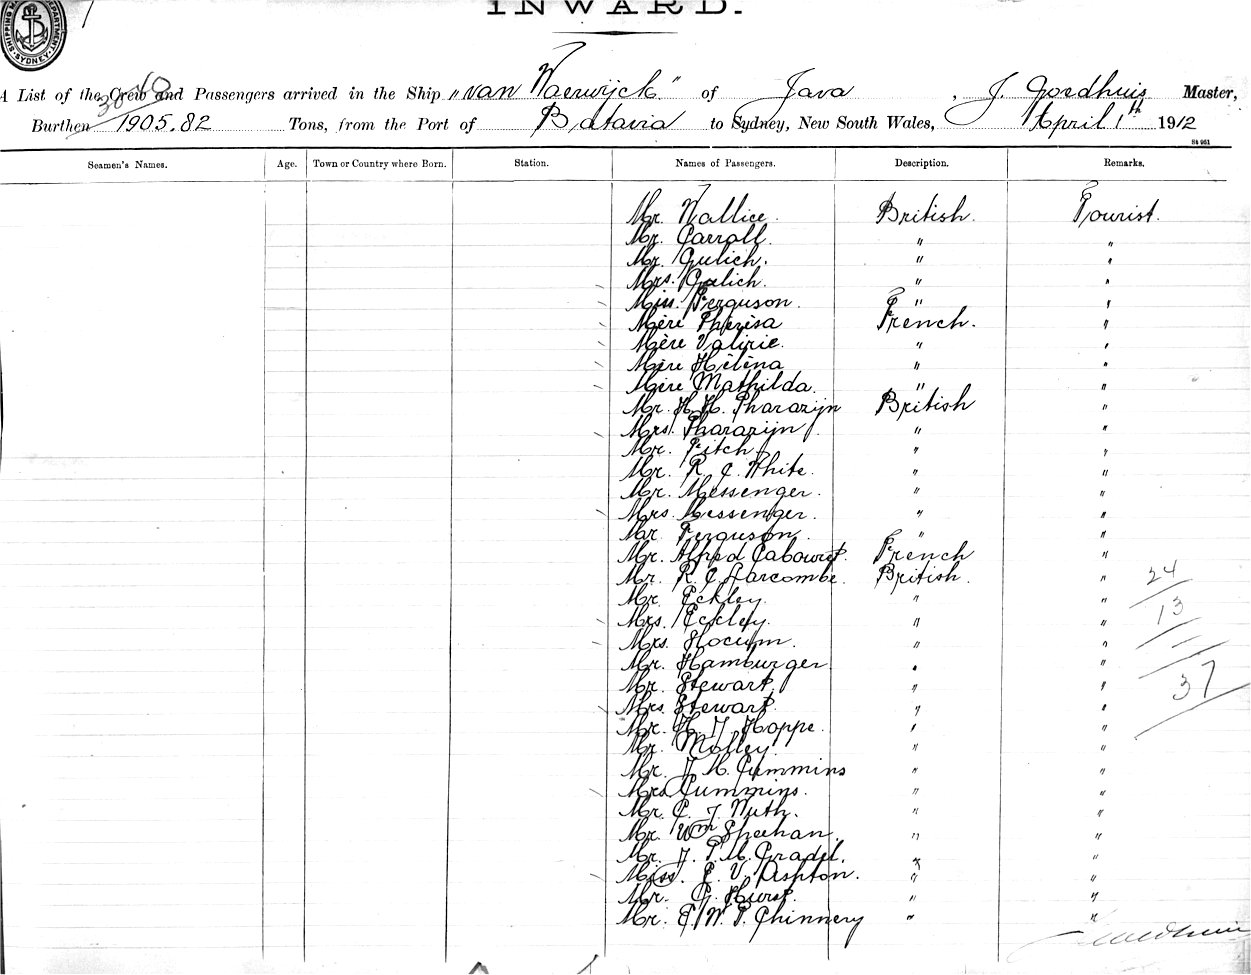 INWARD.
SHIPPING DEPARTMENT SYDNEY
A List of the Crew and Passengers arrived in the Ship "van Waerwijck" of Java, J. Goedhuis Master,
Burthen 1905.82 Tons, from the Port of Batavia to Sydney, New South Wales, April 1th 1912
St 951
Seamen's Names. Age. Town or Country where Born. Station. Names of Passengers. Description. Remarks.
Mr. Wallice. British. Tourist.
Mr. Carroll. " "
Mr. Gulich. " "
Mrs. Gulich. " "
Miss. Ferguson. " "
Mère Thérèsa French. "
Mère Valirie. " "
Mère Hélèna " "
Mère Mathilda. " "
Mr. H. H. Pharazijn British "
Mrs. Pharazijn. " "
Mr. Fitch " "
Mr. R. C. White. " "
Mr. Messenger. " "
Mrs. Messenger. " "
Mr. Ferguson. " "
Mr. Alfred Cabouret. French "
Mr. R. C. Larcombe. British. "
Mr. Eckley. " "
Mrs. Eckley. " "
Mrs. Slocum. " "
Mr. Hamburger. " "
Mr. Stewart. " "
Mrs. Stewart. " "
Mr. H. J. Hoppe. " "
Mr. Molley. " "
Mr. J. M. Cummins " "
Mrs Cummins. " "
Mr. C. J. Wuth. " "
Mr. Wm Sheehan. " "
Mr. J. P. M. Gradel. " "
Miss. E. V. Ashton. " "
Mr. G. Hurst. " "
Mr. E. W. P. Chinnery " "
24
13
37